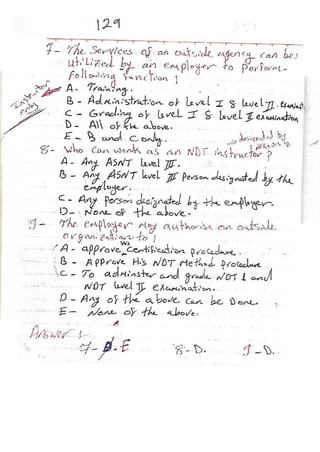 129
7- The Services of an outside agency can be
utilized by an employer to perform
following function!
A- Training.
Instructor only
B- Administration of Level I & level II. examinat
C- Grading of Level I & level II examination
D- All of the above.
E- B and C only.
designated by
8- Who can work as an NDT instructor?
A- Any ASNT level III.
B- Any ASNT level III person designated by the
employer.
C- Any person designated by the employer.
D- None of the above.
9- The employer may authorise an outside
organization to!
A- approve His Certification procedure.
B- Approve His NDT Method procedure
C- To adminster and grade NDT I and
NDT level II examination.
D- Any of the above can be Done.
E- None of the above.
Answer:
7- E 8-D. 9-D.